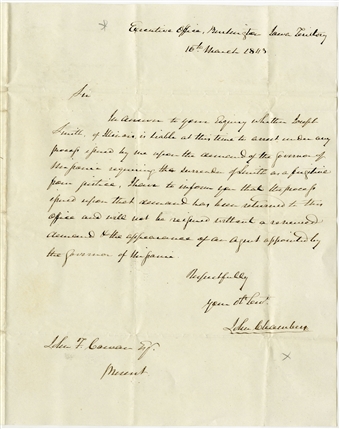 Executive Office, Burlington Iowa Territory
16th March 1843
Sir
In answer to your Enquiry whether Joseph
Smith, of Illinois is liable at this time to arrest under any
process issued by me upon the demand of the Governor of
Missouri requiring the surrender of Smith as a fugitive
from justice, I have to inform you that the process
issued upon that demand has been returned to this
office and will not be reissued without a renewed
demand & the appearance of an Agent appointed by
the Governor of Missouri
Respectfully
your Obt Servt
John Chambers
John F. Cowan Esqr.
Present